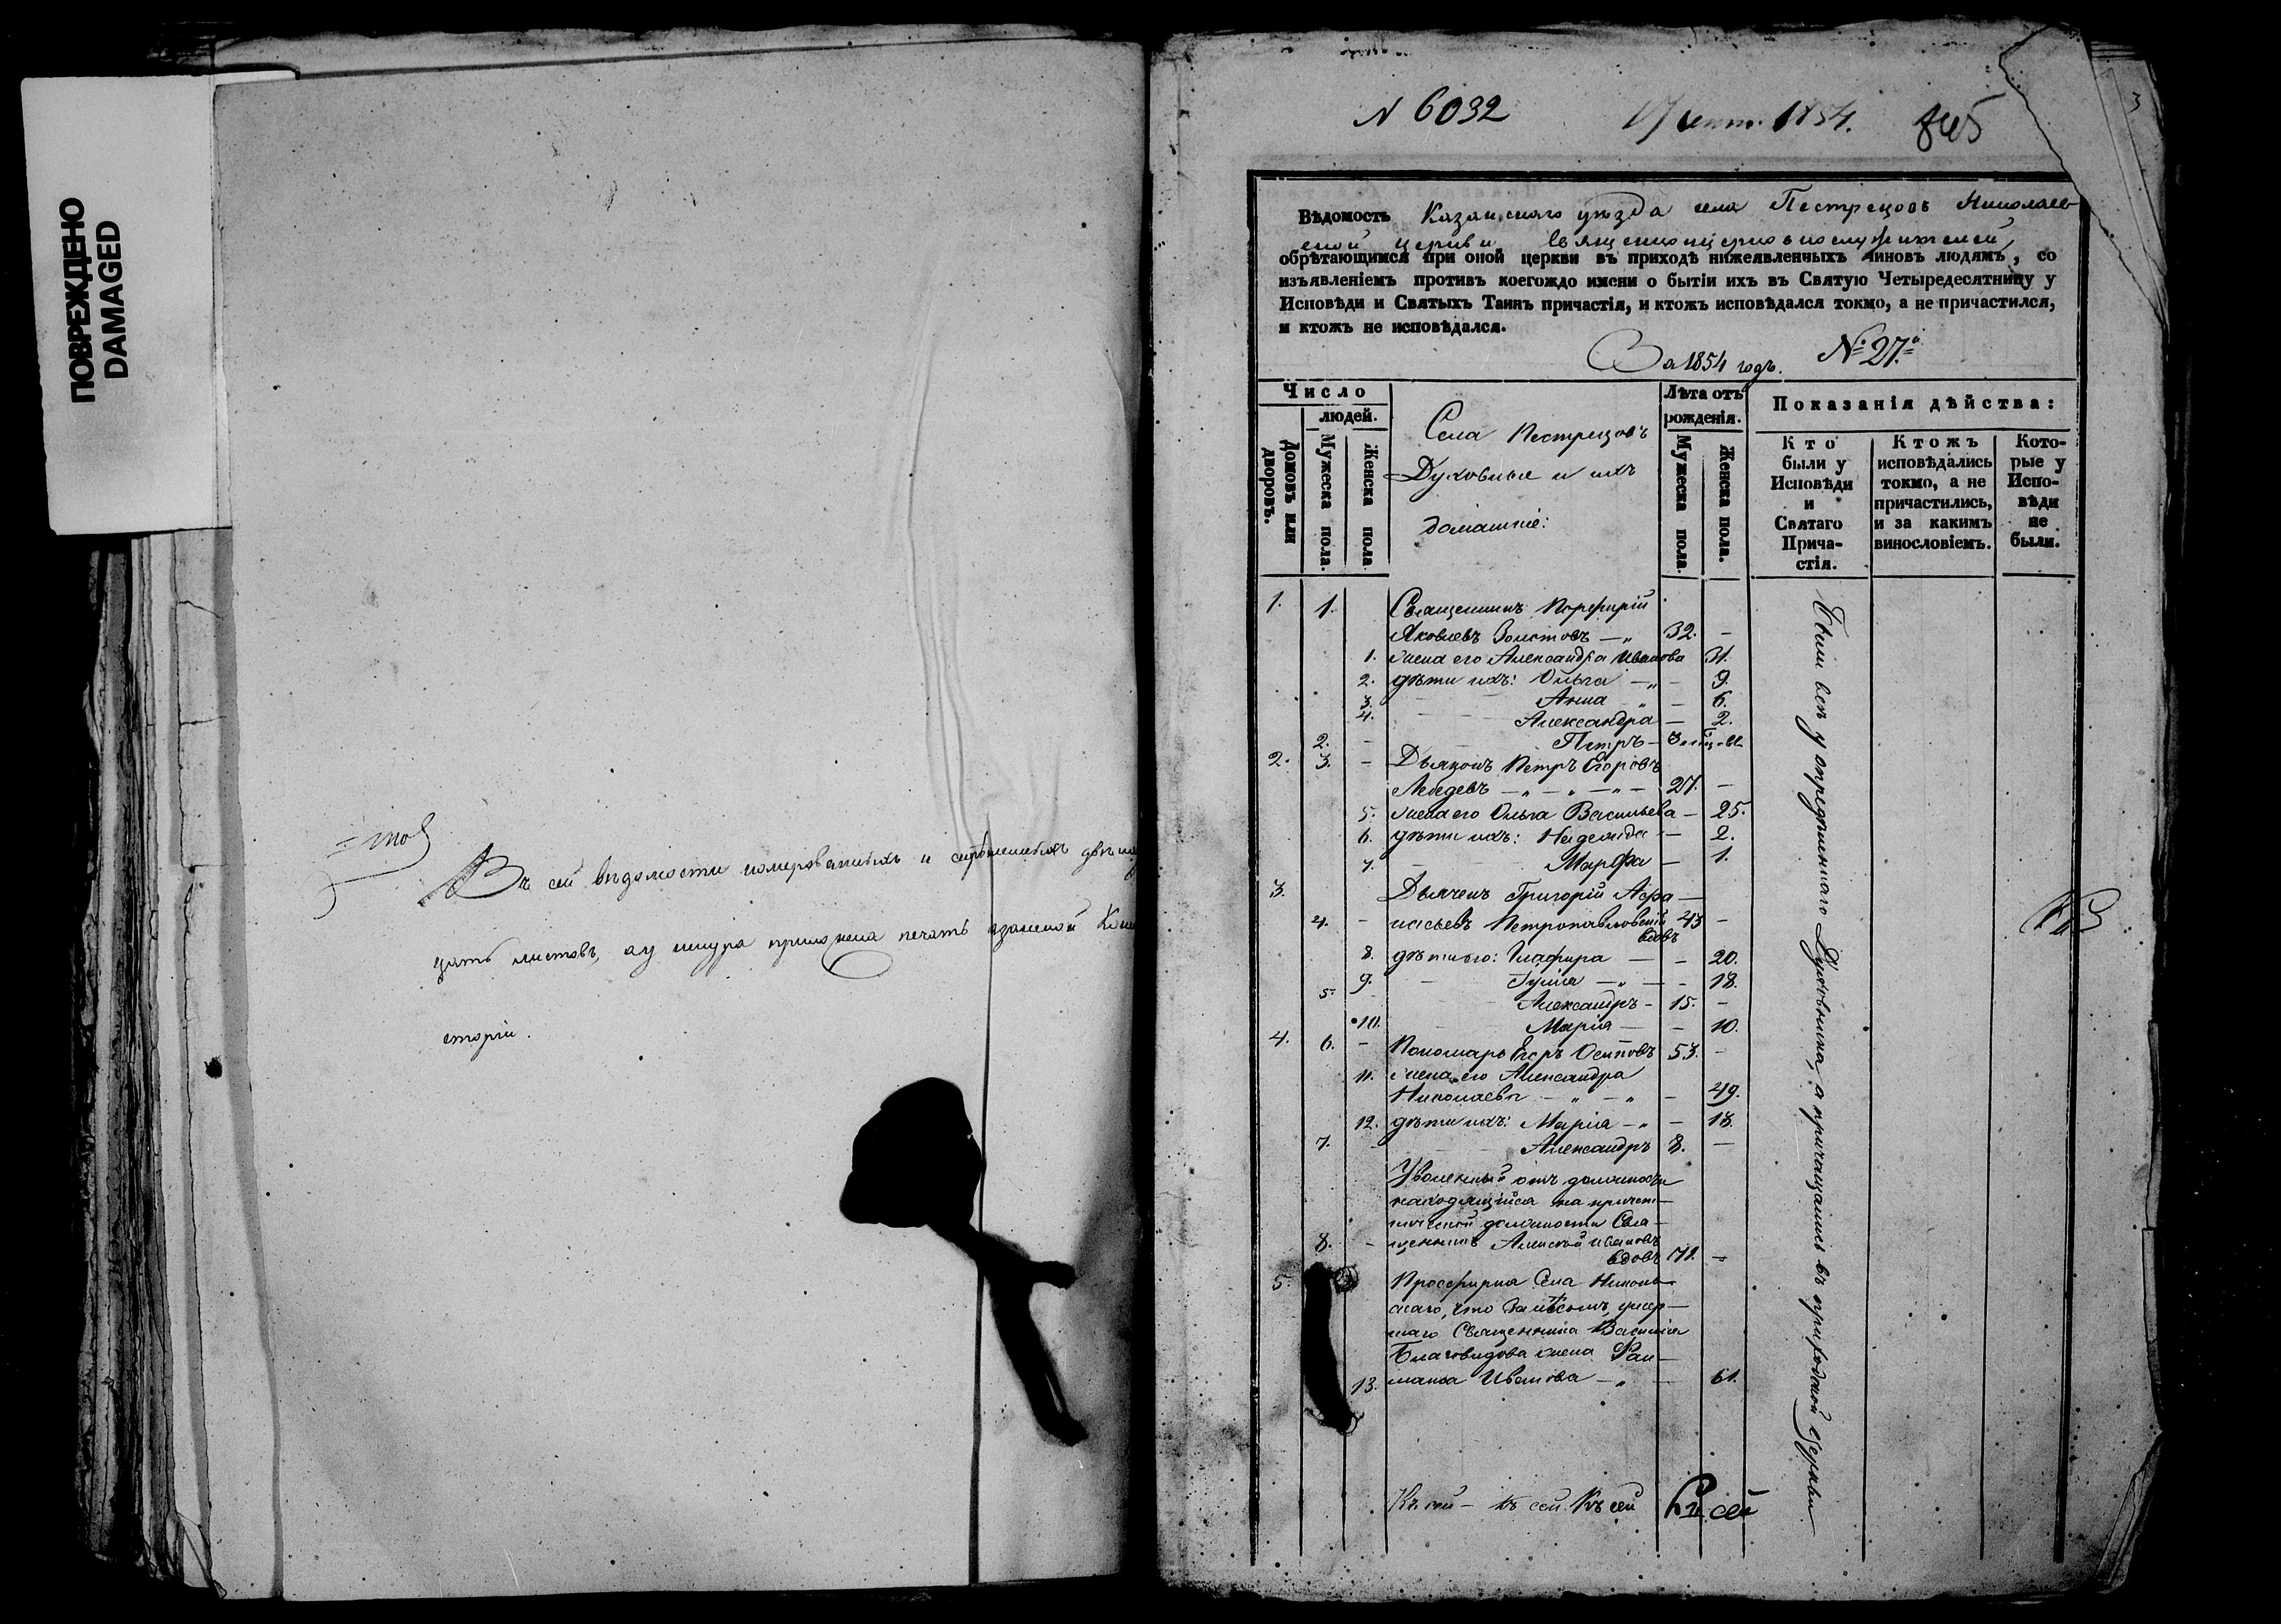 ПОВРЕЖДЕНО
DAMAGED
Въ сей вѣдомости номерованныхъ и скрѣпленныхъ
цать листовъ, а у шнура приложена печать
сторіи.
N 6032
1854.
845
3
Вѣдомость Казанскаго уѣзда села Пестрецовъ Николаев
ской церкви Священноцерковнослужителей,
обрѣтающимся при оной церкви въ приходѣ нижеявленныхъ чиновъ людямъ, со
изъявленіемъ противъ коегождо имени о бытіи ихъ въ Святую Четыредесятницу у
Исповѣди и Святыхъ Таинъ причастія, и ктожъ исповѣдался токмо, а не причастился,
и ктожъ не исповѣдался.
За 1854 годъ. № 27.
Число
людей.
Домовъ или дворовъ.
Мужеска пола.
Женска пола
Села Пестрецовъ
Духовные и ихъ
домашніе:
Лѣта отъ рожденія.
Мужеска пола.
Женска пола.
Показанія дѣйства:
Кто были у Исповѣди и Святаго Причастія.
Ктожъ исповѣдались токмо, а не причастились, и за какимъ винословіемъ.
Которые у Исповѣди не были.
1. 1. Священникъ Порфирій
Яковлевъ Золотовъ — 32. —
1. жена его Александра Иванова 31.
2. дѣти ихъ: Ольга — 9.
3. Анна — 6.
4. Александра — 2.
2. — Петръ —
2. 3. — Дьяконъ Петръ Егоровъ
Лебедевъ — 27. —
5. жена его Ольга Васильева — 25.
6. дѣти ихъ: Надежда — 2.
7. Марфа — 1.
3. Дьячекъ Григорій Афа—
4. — насьевъ Петропавловскій 43 —
вдовъ
8. дѣти его: Глафира — 20.
9. Гулія — 18.
5. Александръ — 15. —
10. Марія — 10.
4. 6. — Пономарь Егоръ Осиповъ 53. —
11. жена его Александра
Николаева — 49.
12. дѣти ихъ: Марія — 18.
7. Александръ 8. —
Уволенный отъ должности
находящійся на причет—
нической должности Свя—
8. — щенникъ Алексѣй Ивановъ
вдовъ 71. —
5. Просфирня Села Николь—
скаго, что за лѣсомъ, умер—
шаго Священника Василія
Благовидова жена
13. Иванова — 61.
Были всѣ у опредѣленнаго Духовника, а причащались въ приходской церкви
Къ сей — къ сей. Къ сей Къ сей